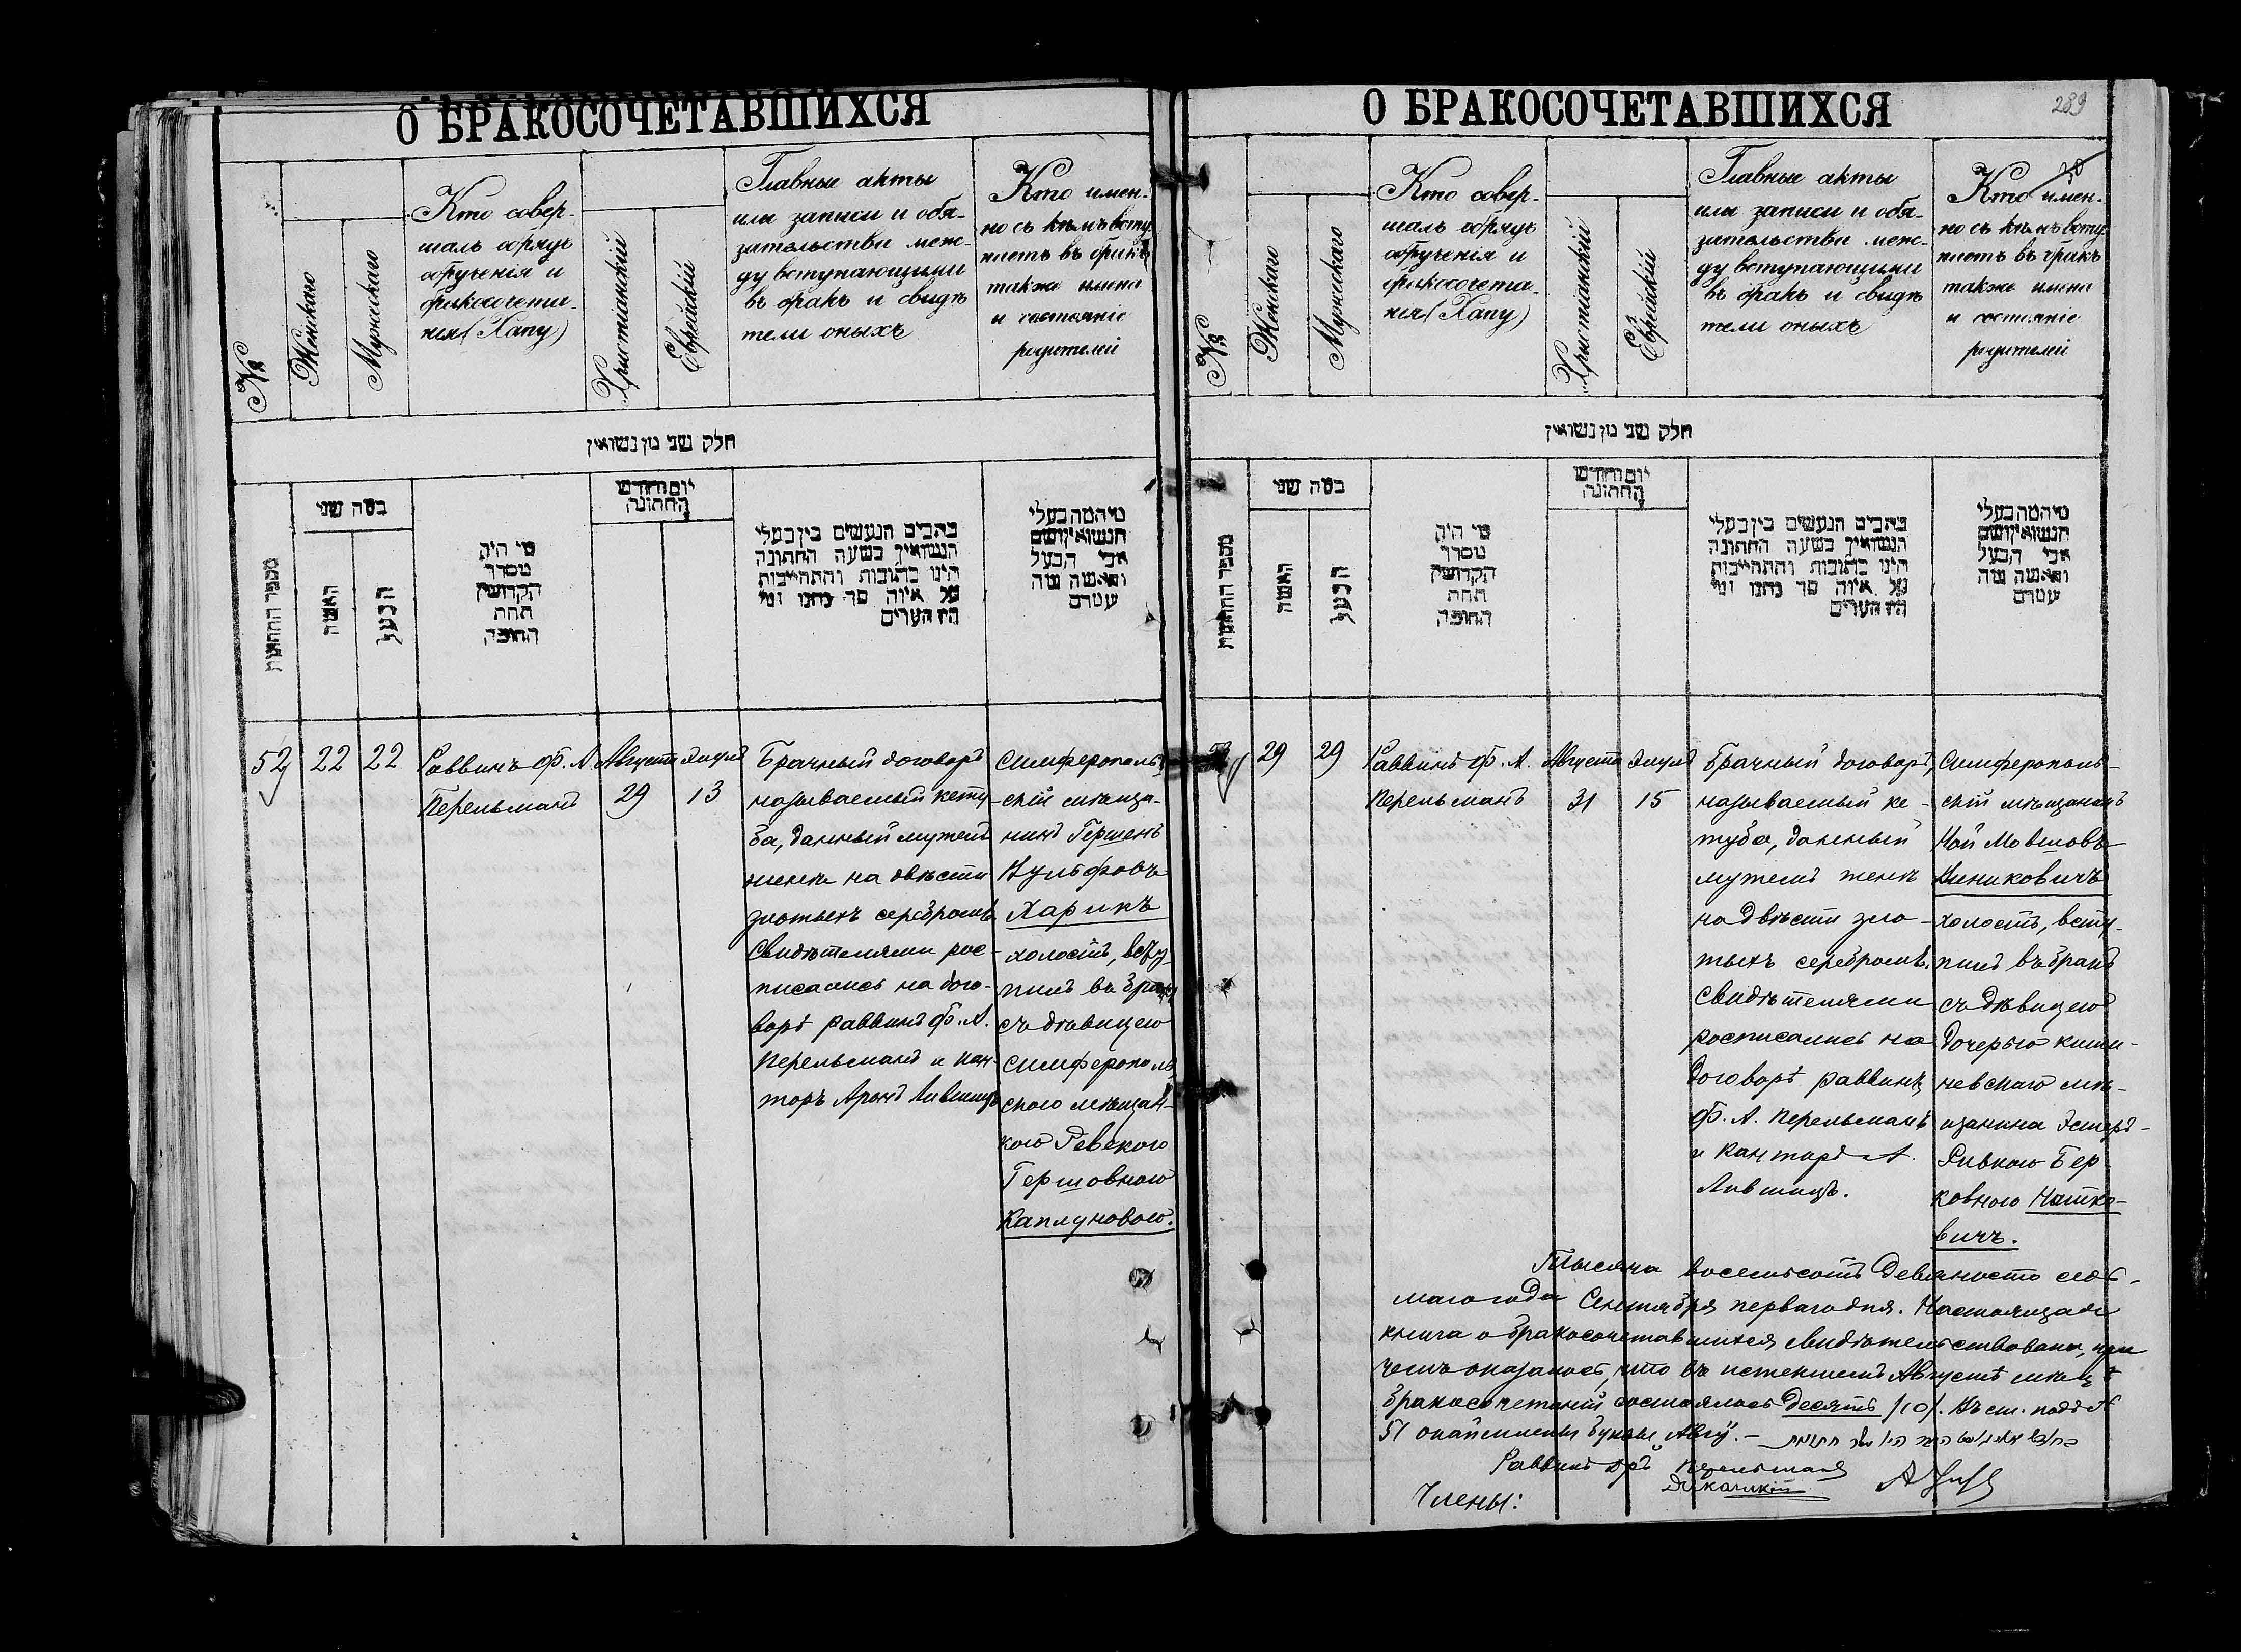 О БРАКОСОЧЕТАВШИХСЯ
№
Женскаго
Мужескаго
Кто совер-
шалъ обрядъ
обрученія и
бракосочета-
нія (Хапу)
Христіанскій
Еврейскій
Главные акты
или записи и обя-
зательства меж-
ду вступающими
въ бракъ и свидѣ
тели оныхъ
Кто имен-
но съ кѣмъ всту
паетъ въ бракъ
также имена
и состояніе
родителей
חלק שני מן נשואין
מספר החתונות
כמה שני
האשה
הבעל
מי היה
מסדר
הקדושין
תחת
החופה
יום וחודש
החתונה
כתבים הנעשים בין בעלי
הנשואין בשעה החתונה
היינו כתובות והתחייבות
על איזה סך נתנו ומי
היו העדים
מי המה בעלי
הנשואין ושם
אבי הבעל
והאשה ומה
עטרם
52
22
22
Раввинъ Ф. А.
Перельманъ
Августа
29
Элула
13
Брачный договоръ
называемый кету-
ба, данный мужемъ
женѣ на двѣсти
злотыхъ серебромъ
Свидѣтелями рос-
писались на дого-
ворѣ раввинъ Ф. А.
Перельманъ и кан-
торъ Аронъ Лившицъ
Симферополь-
скій мѣща-
нинъ Гершенъ
Вульфовъ
Харикъ
холостъ, всту-
пилъ въ бракъ
съ дѣвицею
Симферополь-
скою мѣщан-
кою Ревекою
Гершовною
Каплуновою.
О БРАКОСОЧЕТАВШИХСЯ
289
№
Женскаго
Мужескаго
Кто совер-
шалъ обрядъ
обрученія и
бракосочета-
нія (Хапу)
Христіанскій
Еврейскій
Главные акты
или записи и обя-
зательства меж-
ду вступающими
въ бракъ и свидѣ
тели оныхъ
Кто имен-
но съ кѣмъ всту
паетъ въ бракъ
также имена
и состояніе
родителей
חלק שני מן נשואין
מספר החתונות
כמה שני
האשה
הבעל
מי היה
מסדר
הקדושין
תחת
החופה
יום וחודש
החתונה
כתבים הנעשים בין בעלי
הנשואין בשעה החתונה
היינו כתובות והתחייבות
על איזה סך נתנו ומי
היו העדים
מי המה בעלי
הנשואין ושם
אבי הבעל
והאשה ומה
עטרם
29
29
Раввинъ Ф. А.
Перельманъ
Августа
31
Элула
15
Брачный договоръ,
называемый ке-
туба, данный
мужемъ женѣ
на двѣсти зло-
тыхъ серебромъ.
Свидѣтелями
росписались на
договорѣ раввинъ
Ф. А. Перельманъ
и канторъ А.
Лившицъ.
Симферополь-
скій мѣщанинъ
Ной Мовшовъ
холостъ, всту-
пилъ въ бракъ
съ дѣвицею
дочерью киши-
невскаго мѣ-
щанина Эстеръ-
Ривкою Бер-
ковною Натко-
вичъ.
Тысяча восемьсотъ девяносто седь-
маго года Сентября перваго дня. Настоящая
книга о бракосочетавшихся свидѣтельствована, при
чемъ оказалось, что въ истекшемъ Августѣ мѣсяцѣ
бракосочетаній состоялось десять /10/. Въ ст. подъ №
51 буквы Авгу. –
Раввинъ Перельманъ
Члены: